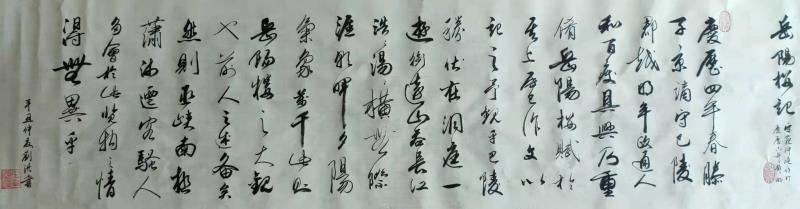 岳陽樓記
慶歷四年春滕
子京謫守巴陵
郡越明年政通人
和百廢具興乃重
脩岳陽樓賦於
其上屬予作文以
記之予觀夫巴陵
勝狀在洞庭一
湖銜遠山吞長江
浩蕩橫無際
涯朝暉夕陽
氣象萬千此則
岳陽樓之大觀
也前人之述備矣
然則巫峽南極
瀟湘遷客騷人
多會於此覽物之情
得無異乎
辛丑仲夏劉洪書